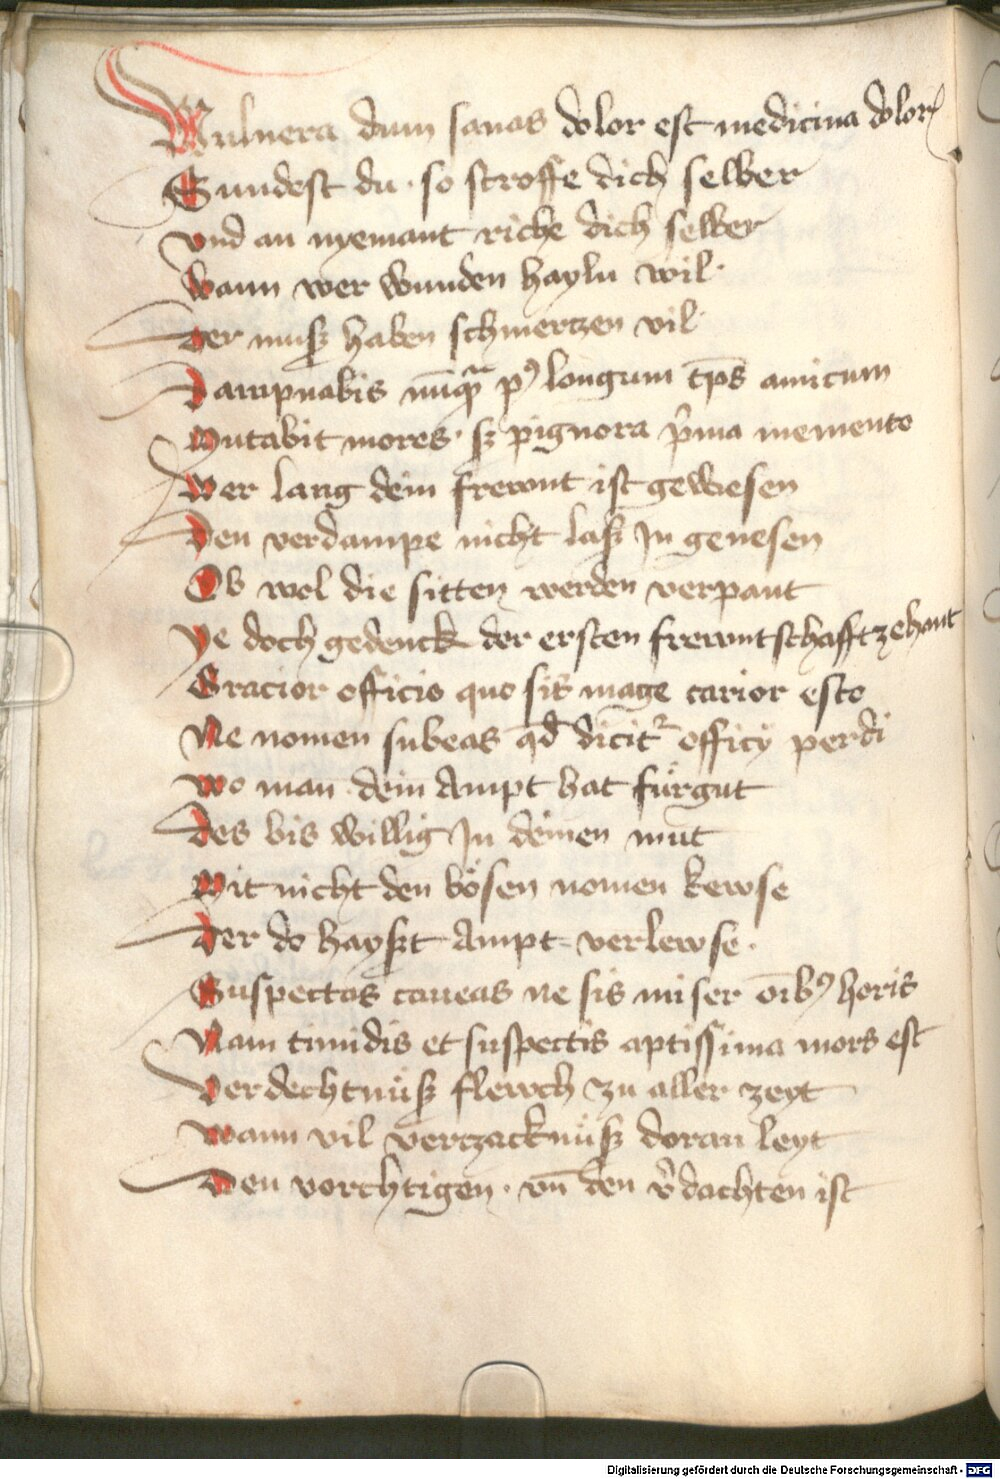 Wulnera dum sanas dolor est medicina dolor
Sundest du · so stroffe dich selber
vnd an nyemant riche dich selber
wann wer wunden hayln wil ·
Der musz haben schmertzen vil ·
Dampnabis nūq̄ p9 longum tp̄s amicum
Mutabit mores · sz pignora p̄ma memento
Wer lang dein frewnt ist gewesen
Den verdampe nicht lasz Jn genesen
Ob wol die sitten werden verpant
Ye doch gedenck der ersten frewntschafft zehant
Gracior officio quo sis mage carior esto
Ne nomen subeas qd̄ dicit² officÿ perdi
wo man dein Ampt hat für gut
Des bis willig Jn deinen mut
Mit nicht den bösen nomen kewse
Der do hayszt Ampt = verlewse ·
Suspectas caueas ne sis miser oīb9 horis
Nam timidis et suspectis aptissima mors est
Verdechtnüsz flewch zu aller zeyt
Wann vil verczacknüsz doran leyt
Den vorchtigen · vn̄ den v̄dachten ist
Digitalisierung gefördert durch die Deutsche Forschungsgemeinschaft - DFG